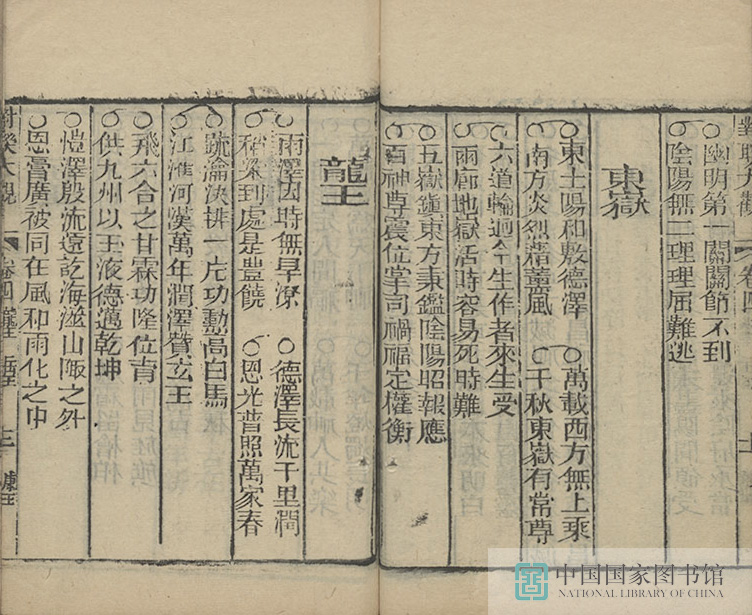 幽明第一關關節不到
陰陽無二理理屈難逃
東嶽
東土陽和敷德澤　萬載西方無上乘
南方炎烈藉薰風　千秋東嶽有常尊
六道輪迴今生作者來生受
雨廊地獄活時容易死時難
五嶽鎮東方秉鑑陰陽昭報應
百神尊震位掌司禍福定權衡
龍王
雨澤因時無旱潦　德澤長流千里潤
稱來到處是豐饒　恩光普照萬家春
疏瀹決排一片功勳高白馬
江淮河漢萬年潤澤贊玄王
飛六合之甘霖功隆位育
供九州以王液德邁乾坤
愷澤殷流遠訖海澨山陬之外
恩膏廣被同在風和雨化之中
中国国家图书馆
NATIONAL LIBRARY OF CHINA